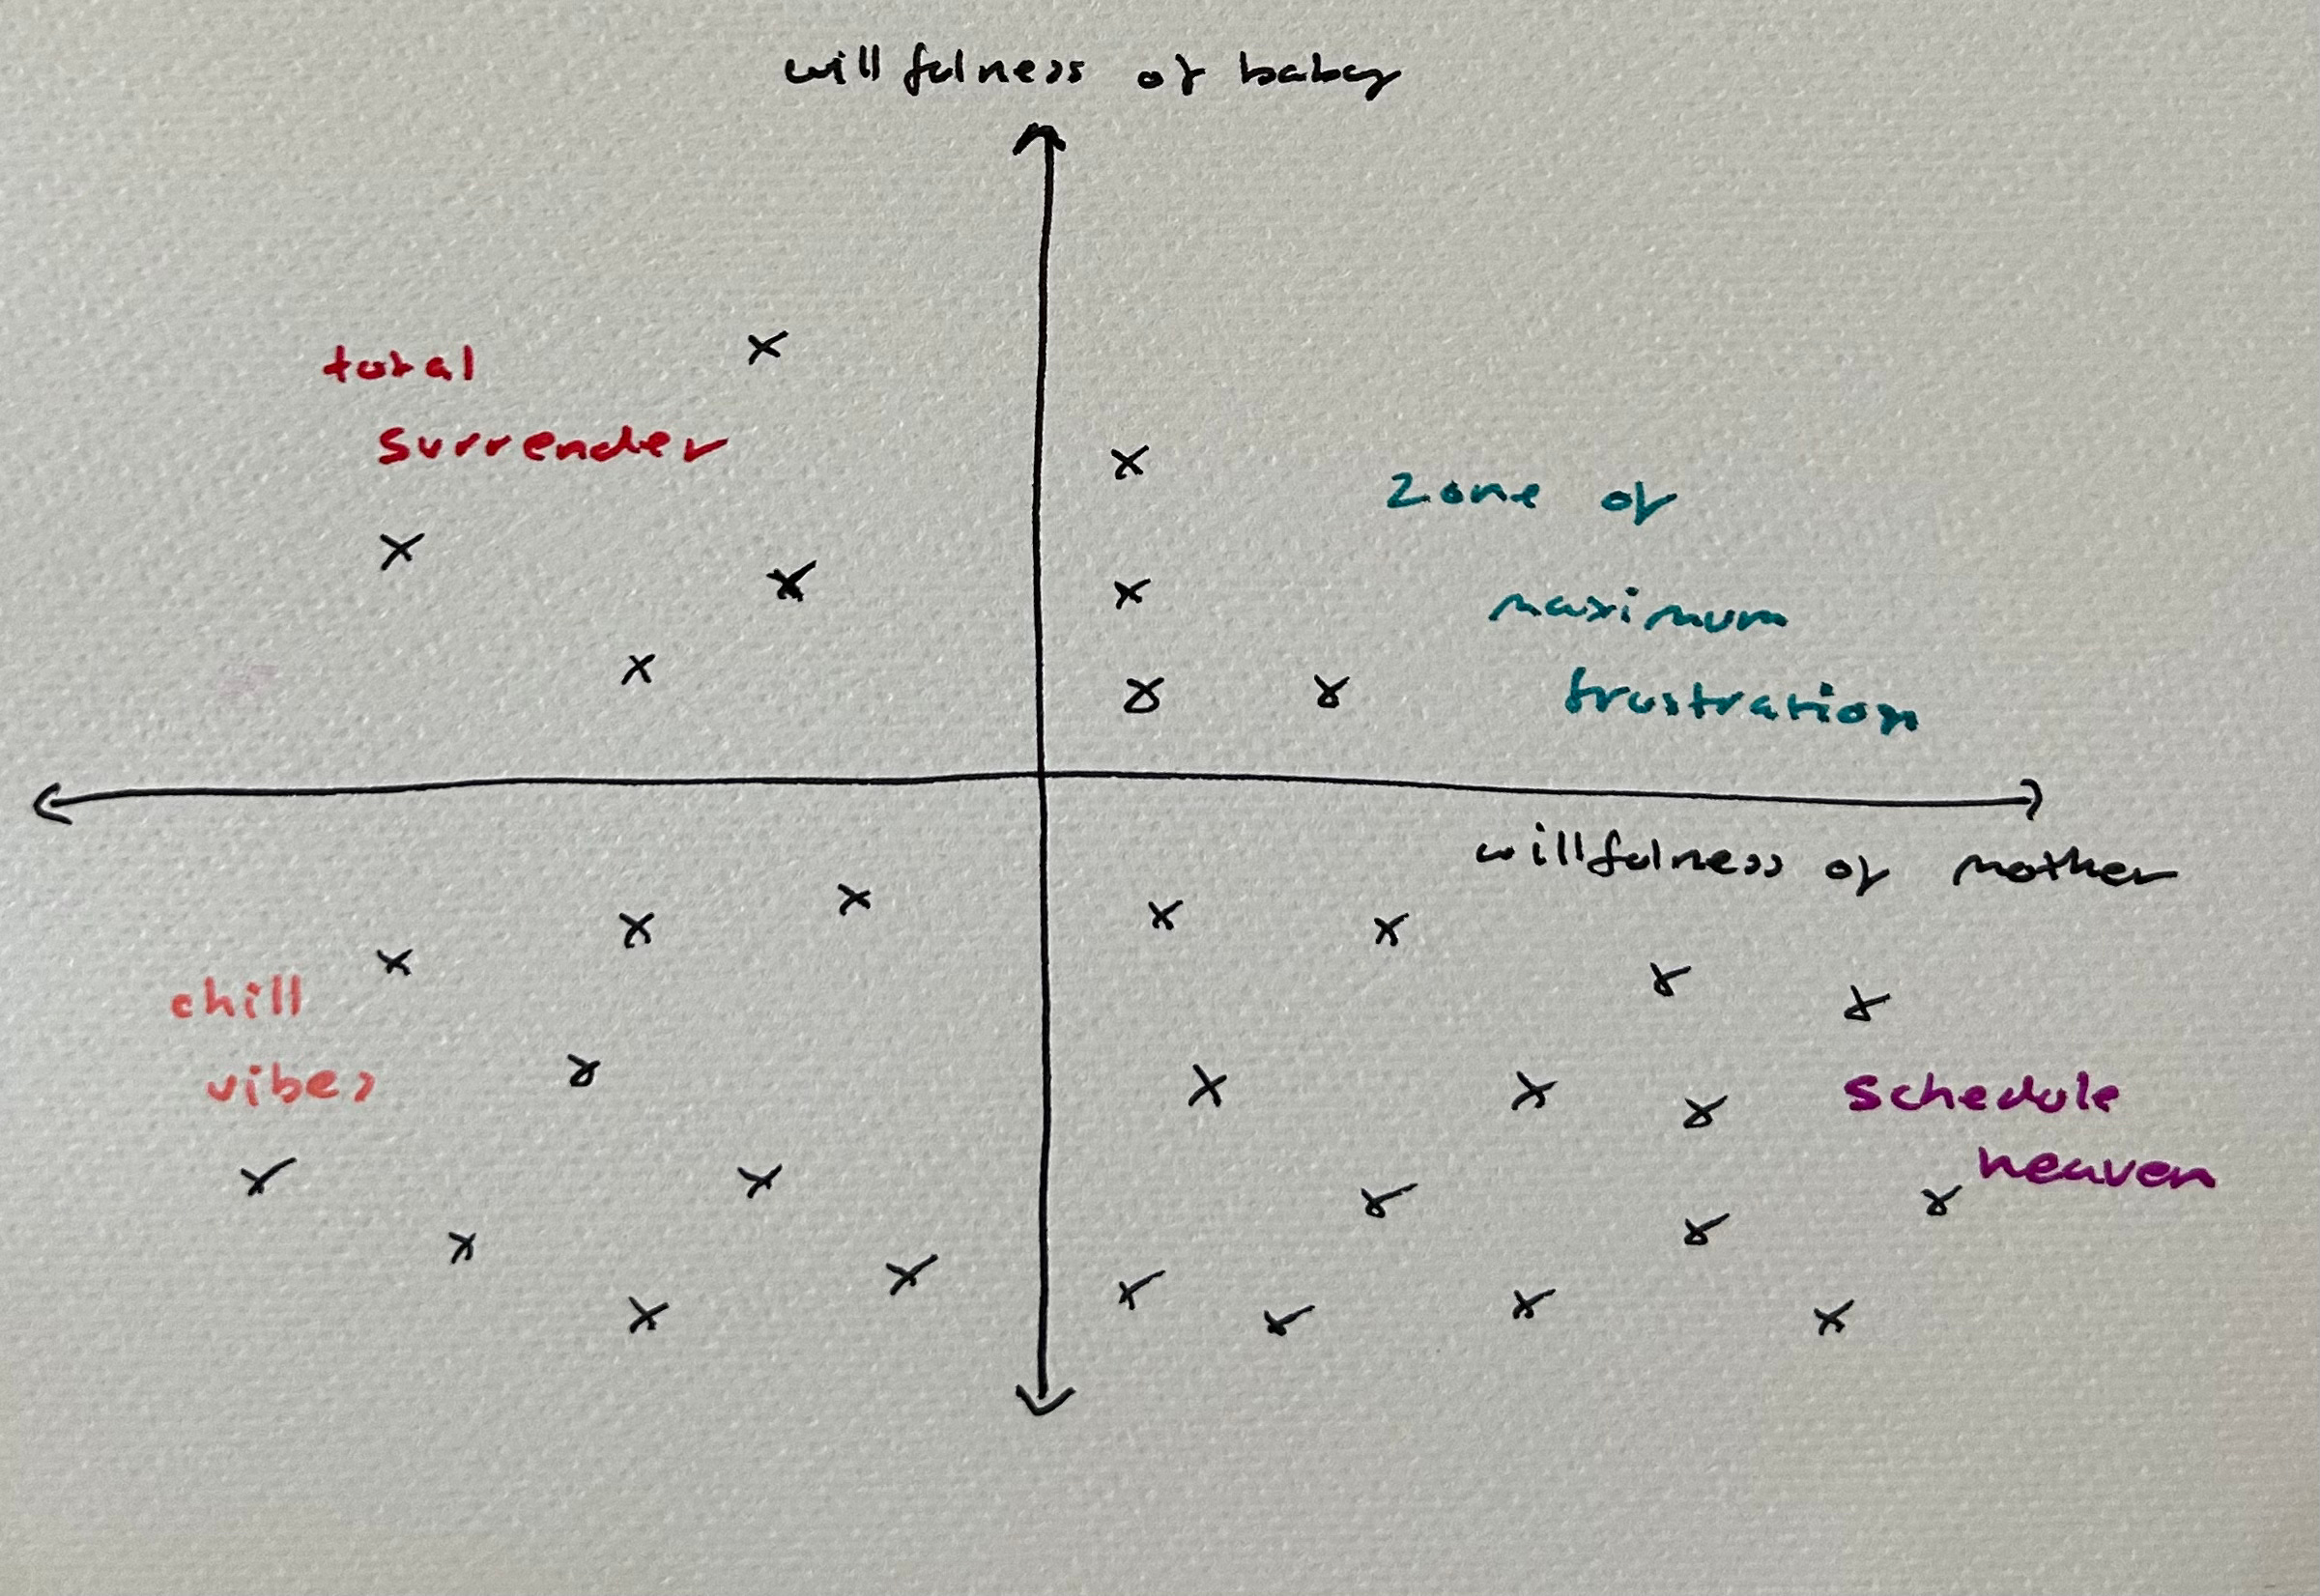 willfulness of baby
total
surrender
zone of
maximum
frustration
willfulness of mother
chill
vibes
schedule
heaven